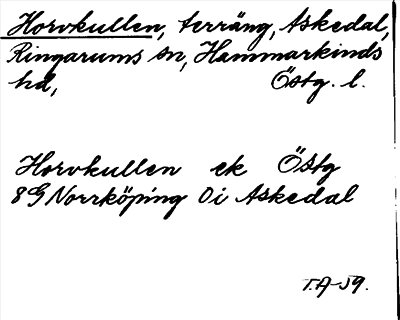 Horvkullen, terräng, Askedal,
Ringarums sn, Hammarkinds
hd, Östg. l.
Horvkullen ek Östg
8G Norrköping 0i Askedal
T.A-59.